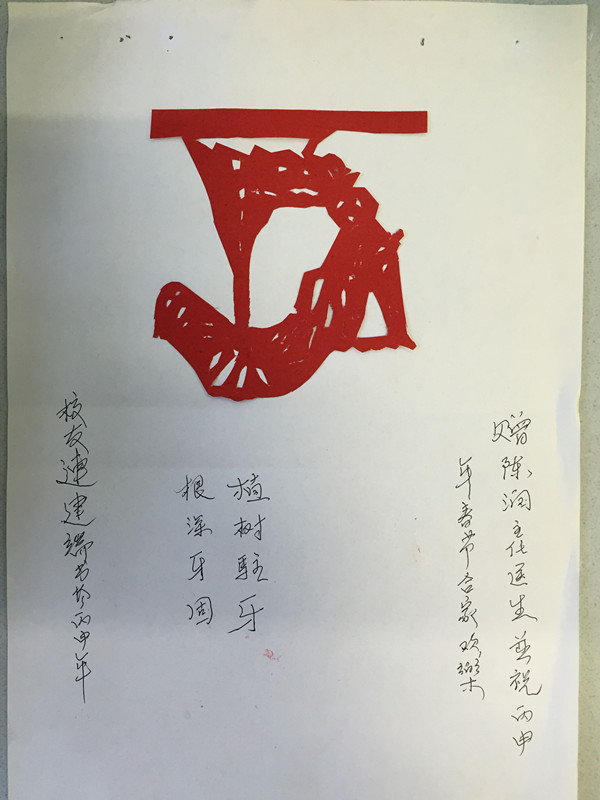 赠陈润主任医生并祝丙申
年春节合家欢樂
植树駐牙
根深牙固
校友連建端书於丙申年